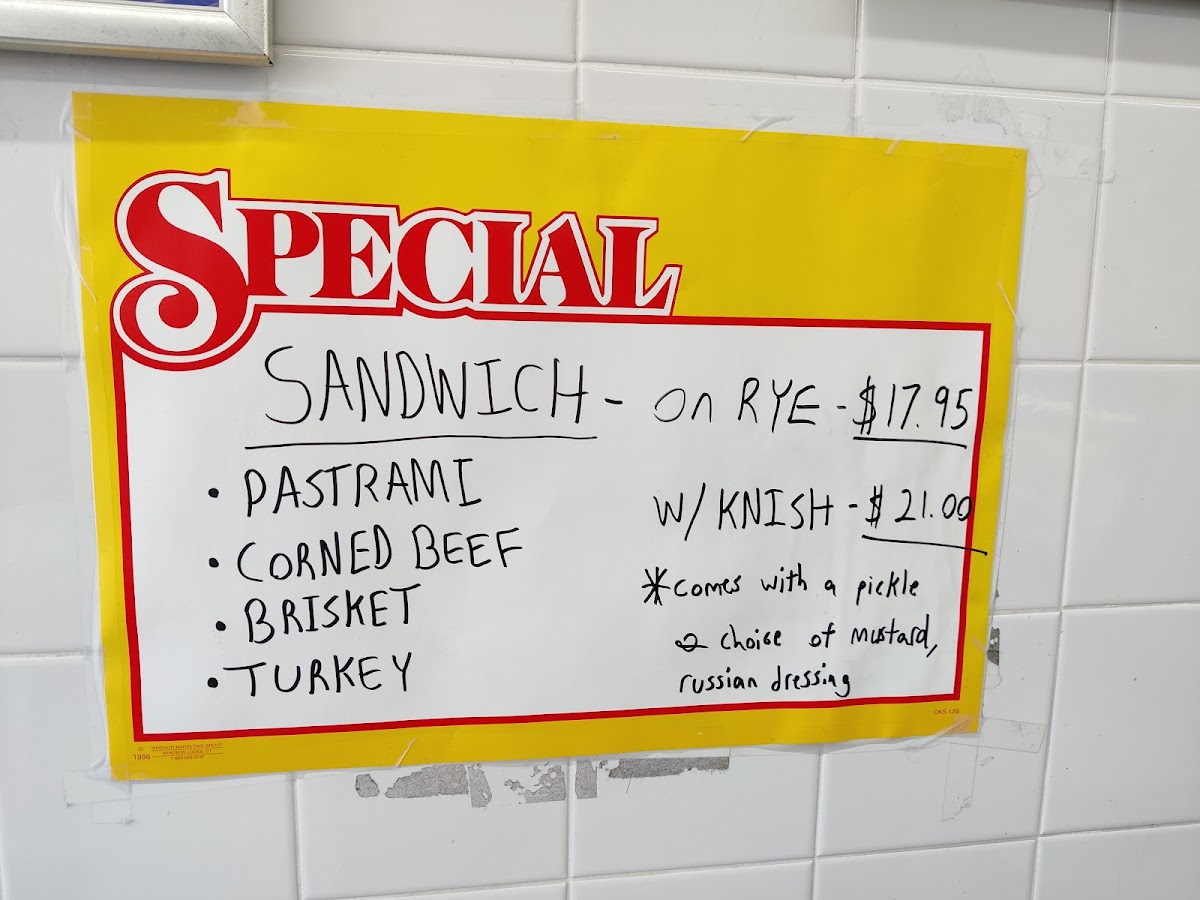 SPECIAL
SANDWICH - on RYE - $17.95
• PASTRAMI
• CORNED BEEF
• BRISKET
• TURKEY
W/ KNISH - $21.00
*comes with a pickle
& choice of mustard,
russian dressing
© 1996
WINDSOR MARKETING GROUP
WINDSOR LOCKS, CT